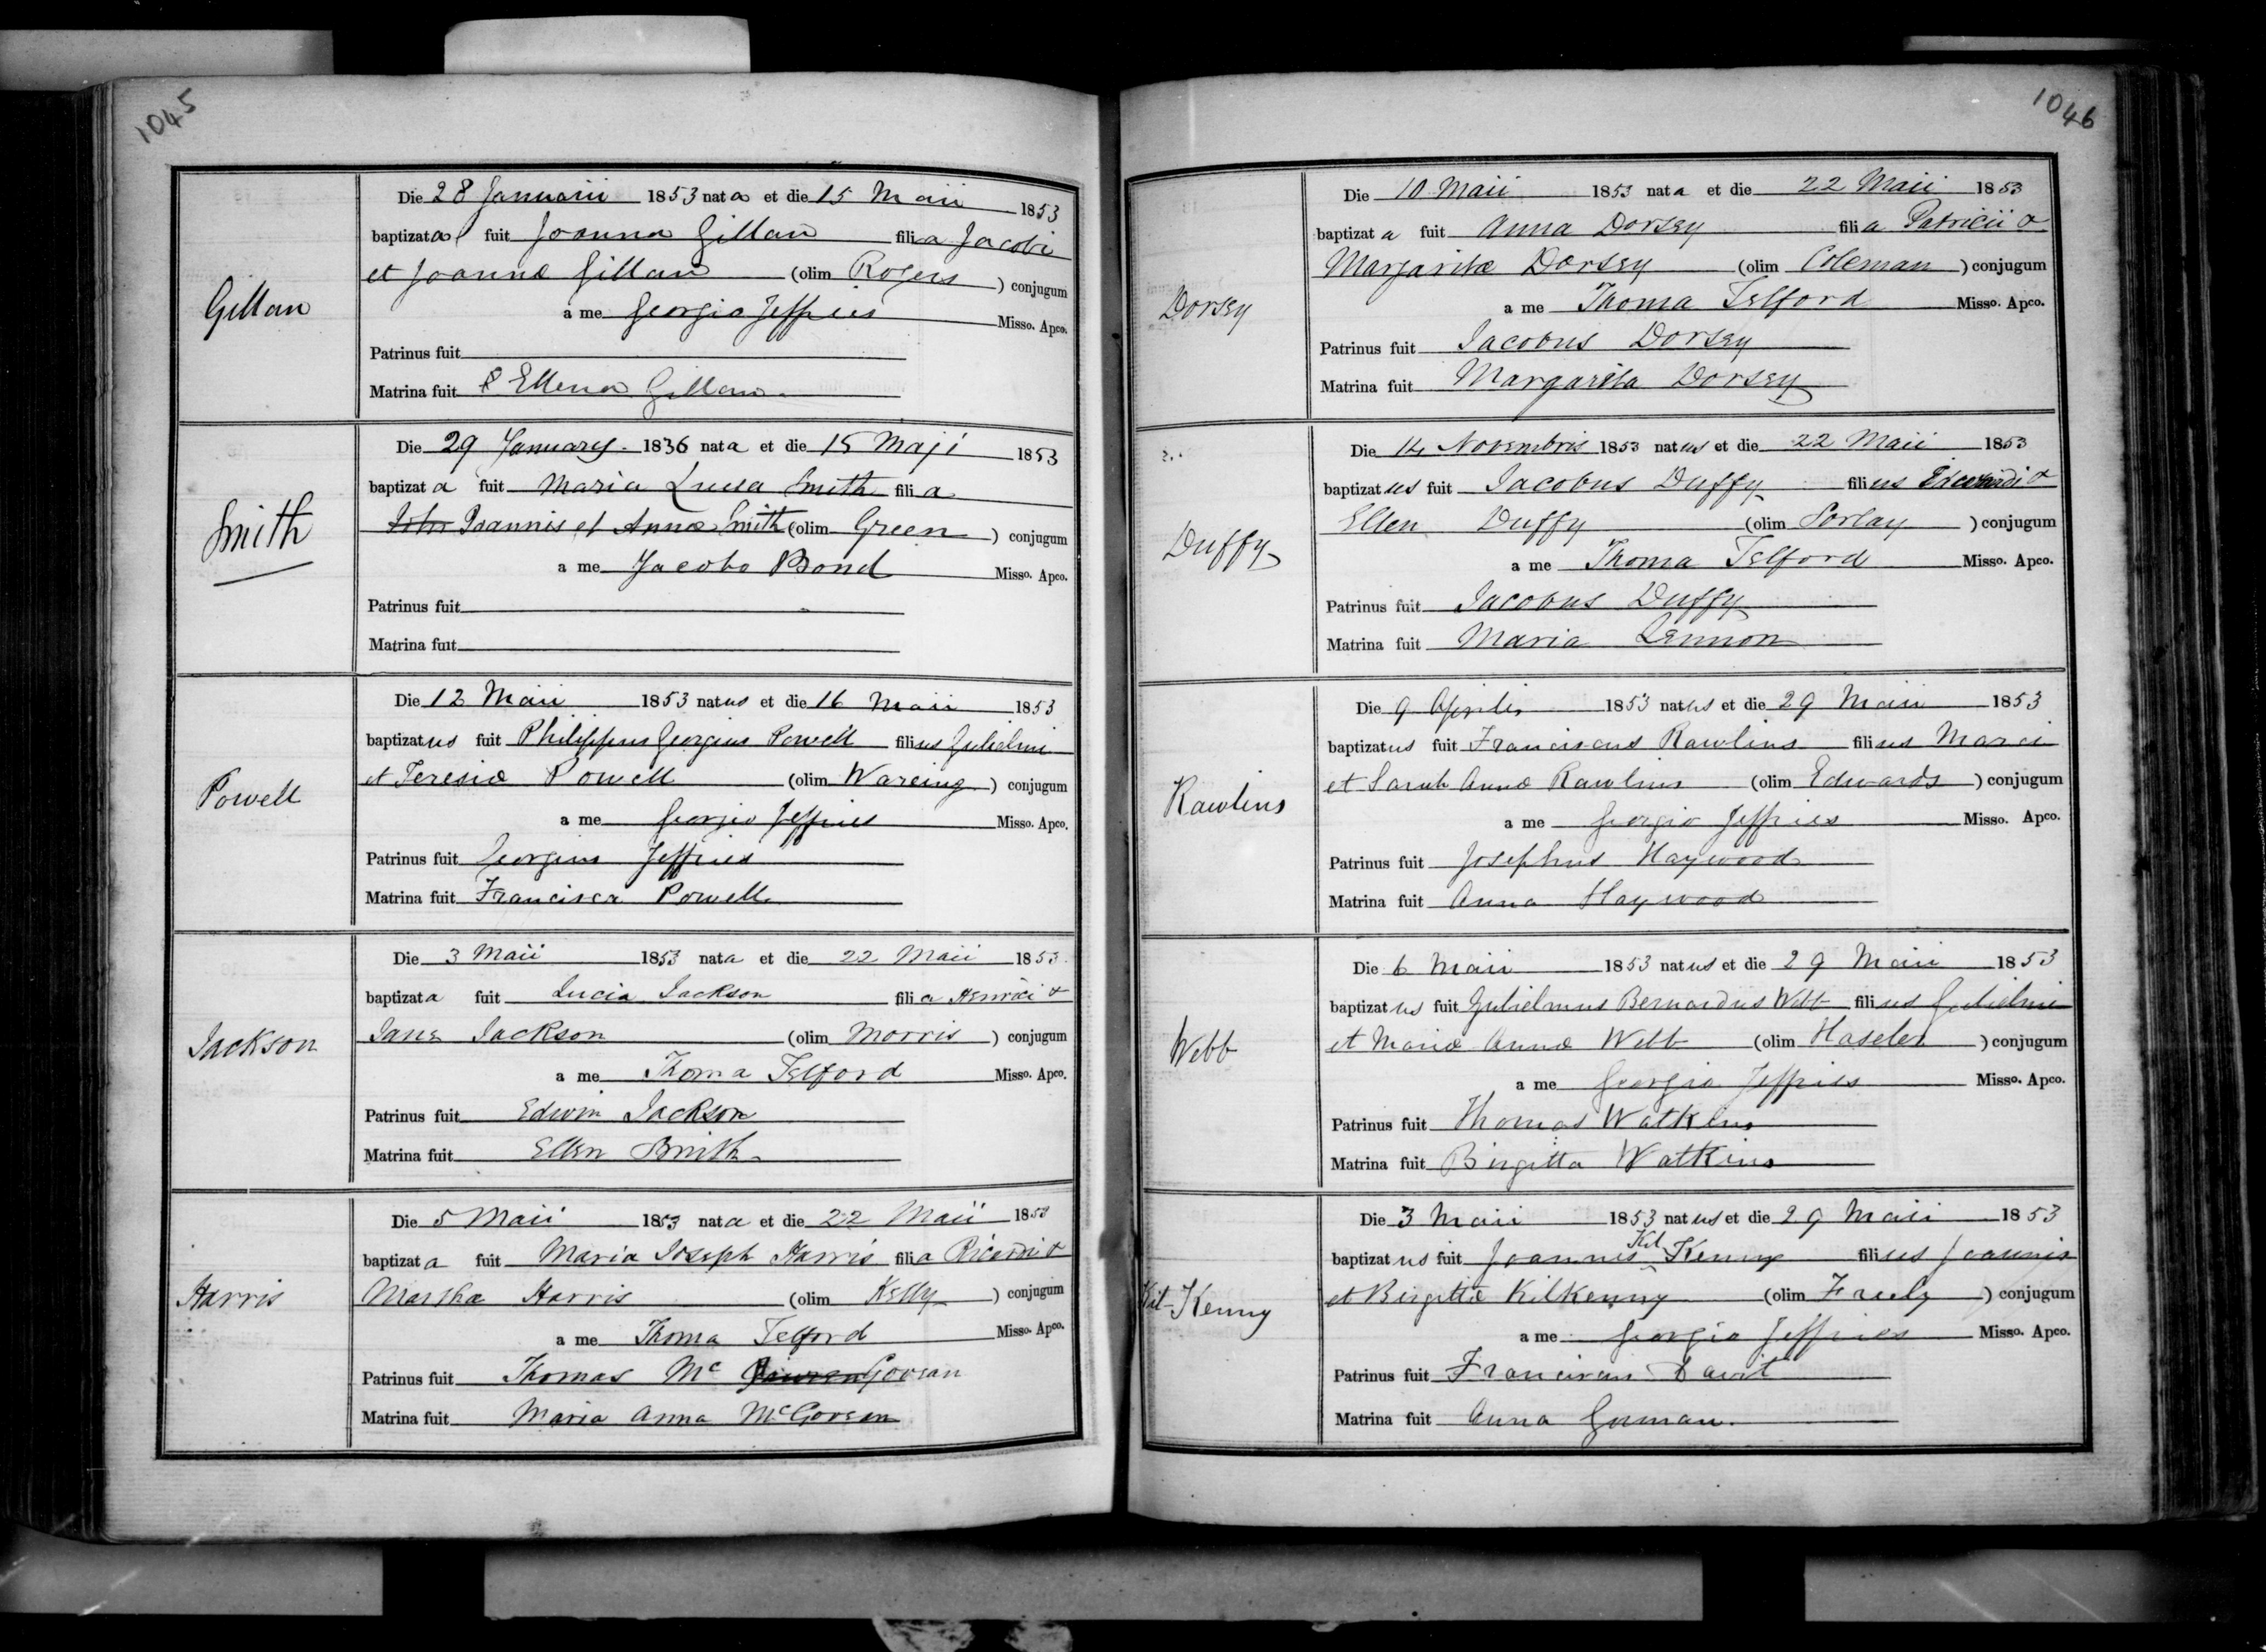 1045
Gillan
Die 28 Januarii 1853 nata et die 15 Maii 1853
baptizata fuit Joanna Gillan filia Jacobi
et Joannæ Gillan (olim Rogers) conjugum
a me Georgio Jeffries Misso. Apco.
Patrinus fuit
Matrina fuit Ellena Gillan
Smith
Die 29 January 1836 nata et die 15 Maji 1853
baptizata fuit Maria Luisa Smith filia
John Joannis et Annæ Smith (olim Green) conjugum
a me Jacobo Bond Misso. Apco.
Patrinus fuit
Matrina fuit
Powell
Die 12 Maii 1853 natus et die 16 Maii 1853
baptizatus fuit Philippus Georgius Powell filius Gulielmi
et Teresiæ Powell (olim Wareing) conjugum
a me Georgio Jeffries Misso. Apco.
Patrinus fuit Georgius Jeffries
Matrina fuit Francisca Powell
Jackson
Die 3 Maii 1853 nata et die 22 Maii 1853
baptizata fuit Lucia Jackson filia Henrici &
Jane Jackson (olim Morris) conjugum
a me Thoma Telford Misso. Apco.
Patrinus fuit Edwin Jackson
Matrina fuit Ellen Smith
Harris
Die 5 Maii 1853 nata et die 22 Maii 1853
baptizata fuit Maria Joseph Harris filia Ricardi &
Martha Harris (olim Kelly) conjugum
a me Thoma Telford Misso. Apco.
Patrinus fuit Thomas Mc Goveran
Matrina fuit Maria Anna McGoveran
1046
Dorsey
Die 10 Maii 1853 nata et die 22 Maii 1853
baptizata fuit Anna Dorsey filia Patricii &
Margaritæ Dorsey (olim Coleman) conjugum
a me Thoma Telford Misso. Apco.
Patrinus fuit Jacobus Dorsey
Matrina fuit Margarita Dorsey
Duffy
Die 14 Novembris 1853 natus et die 22 Maii 1853
baptizatus fuit Jacobus Duffy filius Edwardi &
Ellen Duffy (olim Sorlay) conjugum
a me Thoma Telford Misso. Apco.
Patrinus fuit Jacobus Duffy
Matrina fuit Maria Lennon
Rawlins
Die 9 Aprilis 1853 natus et die 29 Maii 1853
baptizatus fuit Franciscus Rawlins filius Marci
et Sarah Annæ Rawlins (olim Edwards) conjugum
a me Georgio Jeffries Misso. Apco.
Patrinus fuit Josephus Haywood
Matrina fuit Anna Haywood
Webb
Die 6 Maii 1853 natus et die 29 Maii 1853
baptizatus fuit Gulielmus Bernardus Webb filius Gulielmi
et Mariæ Annæ Webb (olim Haseler) conjugum
a me Georgio Jeffries Misso. Apco.
Patrinus fuit Thomas Watkins
Matrina fuit Birgitta Watkins
Kil-Kenny
Die 3 Maii 1853 natus et die 29 Maii 1853
baptizatus fuit Joannes Kil Kenny filius Joannis
et Birgittæ Kilkenny (olim Freely) conjugum
a me Georgio Jeffries Misso. Apco.
Patrinus fuit Franciscus Davit
Matrina fuit Anna